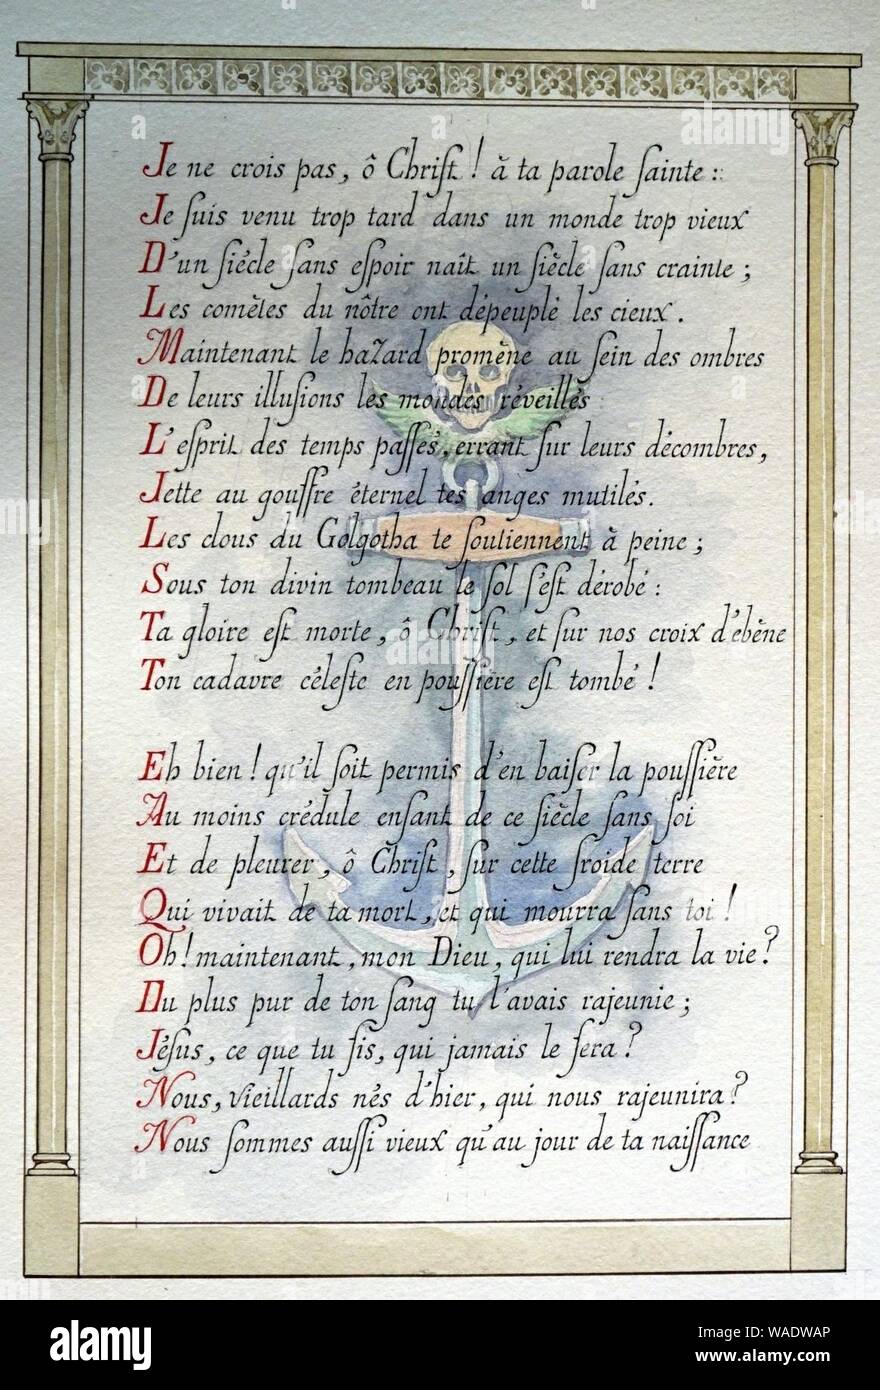 Je ne crois pas, ô Christ ! à ta parole sainte :
Je suis venu trop tard dans un monde trop vieux
D'un siècle sans espoir naît un siècle sans crainte ;
Les comètes du nôtre ont dépeuplé les cieux.
Maintenant le hazard promène au sein des ombres
De leurs illusions les mondes réveillés
L'esprit des temps passés, errant sur leurs décombres,
Jette au gouffre éternel tes anges mutilés.
Les clous du Golgotha te soutiennent à peine ;
Sous ton divin tombeau le sol s'est dérobé :
Ta gloire est morte, ô Christ, et sur nos croix d'ébène
Ton cadavre céleste en poussière est tombé !
Eh bien ! qu'il soit permis d'en baiser la poussière
Au moins crédule enfant de ce siècle sans foi
Et de pleurer, ô Christ, sur cette froide terre
Qui vivait de ta mort, et qui mourra sans toi !
Oh ! maintenant, mon Dieu, qui lui rendra la vie ?
Du plus pur de ton sang tu l'avais rajeunie ;
Jésus, ce que tu fis, qui jamais le fera ?
Nous, vieillards nés d'hier, qui nous rajeunira ?
Nous sommes aussi vieux qu'au jour de ta naissance
alamy
Image ID: WADWAP
www.alamy.com